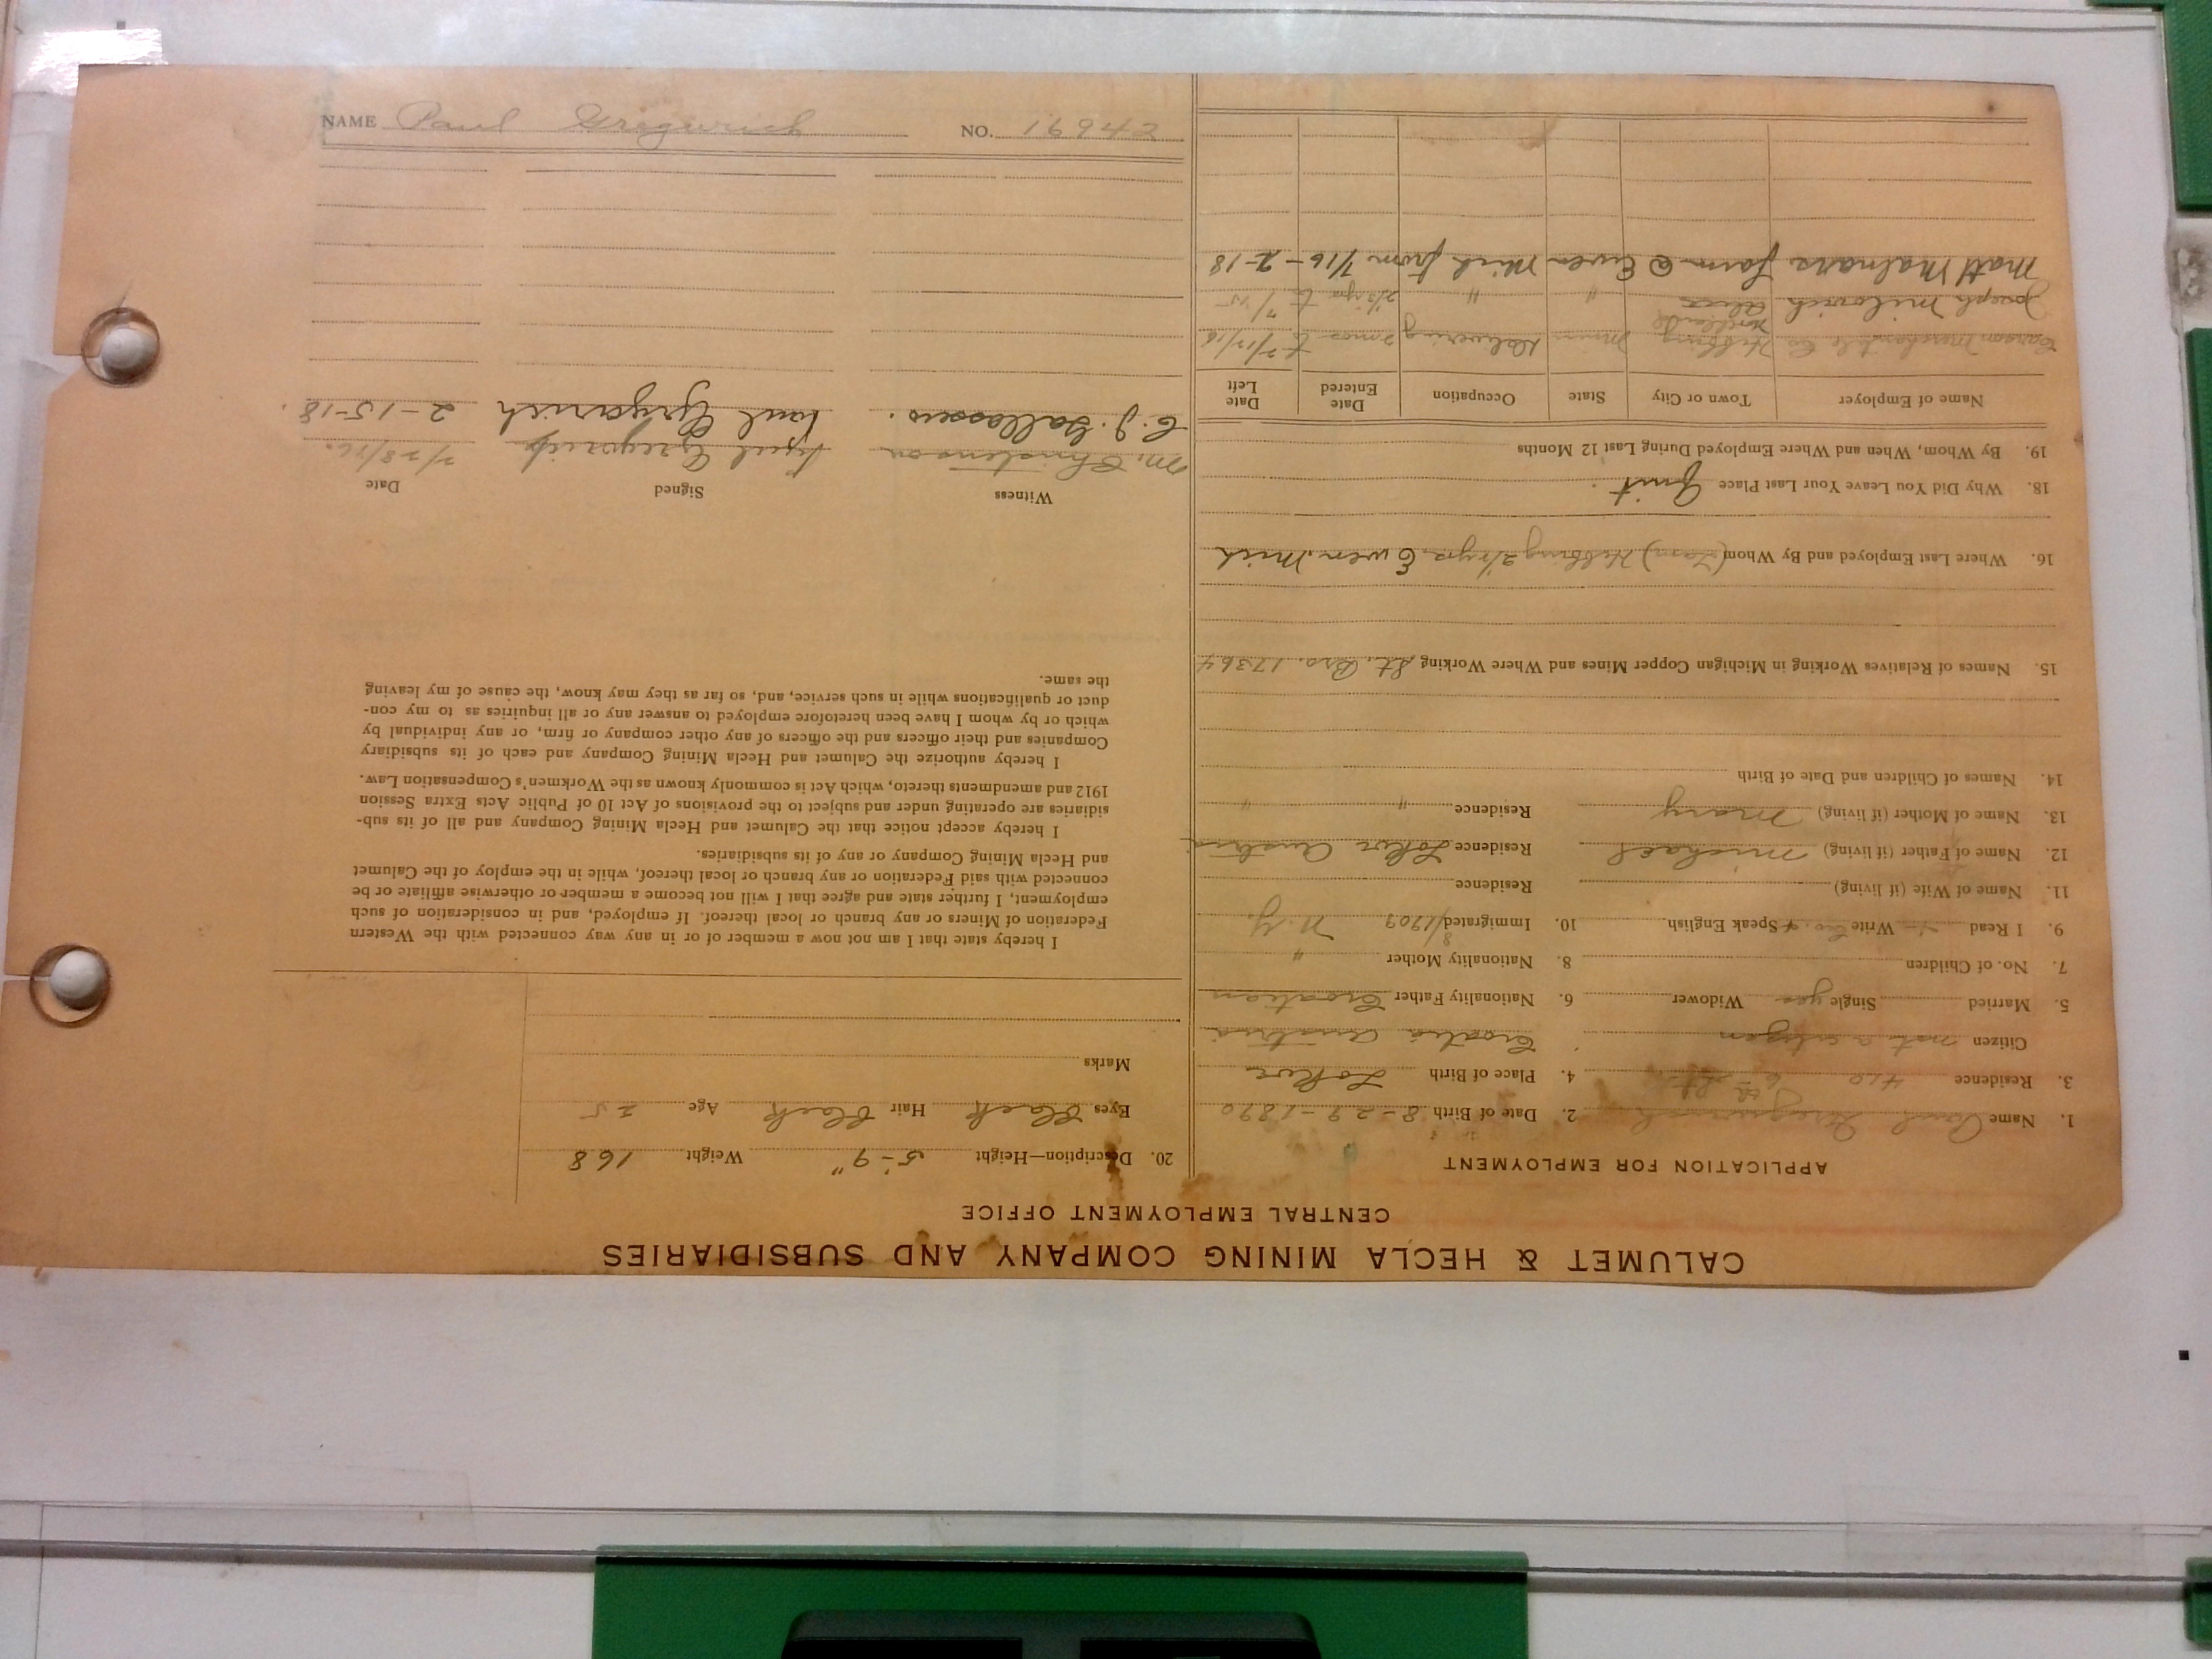 CALUMET & HECLA MINING COMPANY AND SUBSIDIARIES
CENTRAL EMPLOYMENT OFFICE
APPLICATION FOR EMPLOYMENT
1. Name Paul Gregurich 2. Date of Birth 8-29-1890
3. Residence 410 6th St. 4. Place of Birth Lokve
Citizen not a citizen Croatia Austria
5. Married Single yes Widower 6. Nationality Father Croatian
7. No. of Children 8. Nationality Mother "
9. I Read Write Cro. Speak English. 10. Immigrated 8/1909 N.Y
11. Name of Wife (if living) Residence
12. Name of Father (if living) Michael Residence Lokve Austria
13. Name of Mother (if living) Mary Residence " "
14. Names of Children and Date of Birth
15. Names of Relatives Working in Michigan Copper Mines and Where Working St. Bro. 17364
16. Where Last Employed and By Whom Hibbing 2 1/2 yrs Ewen Mich
18. Why Did You Leave Your Last Place Quit
19. By Whom, When and Where Employed During Last 12 Months
Name of Employer Town or City State Occupation Date Entered Date Left
Carson Mercantile Co Hibbing Minn Delivering 2 mos to 7/17/16
Joseph Milovich " "
Matt Malnars farm @ Ewen Mich from 7/16 - 2-18
20. Description—Height 5'-9" Weight 168
Eyes Black Hair Black Age 25
Marks
I hereby state that I am not now a member of or in any way connected with the Western
Federation of Miners or any branch or local thereof. If employed, and in consideration of such
employment, I further state and agree that I will not become a member or otherwise affiliate or be
connected with said Federation or any branch or local thereof, while in the employ of the Calumet
and Hecla Mining Company or any of its subsidiaries.
I hereby accept notice that the Calumet and Hecla Mining Company and all of its sub-
sidiaries are operating under and subject to the provisions of Act 10 of Public Acts Extra Session
1912 and amendments thereto, which Act is commonly known as the Workmen's Compensation Law.
I hereby authorize the Calumet and Hecla Mining Company and each of its subsidiary
Companies and their officers and the officers of any other company or firm, or any individual by
which or by whom I have been heretofore employed to answer any or all inquiries as to my con-
duct or qualifications while in such service, and, so far as they may know, the cause of my leaving
the same.
Witness Signed Date
M. Christenson Paul Gregurich 7/28/16.
C. J. Gallosso. Paul Grgurich 2-15-18.
NAME Paul Gregurich NO. 16942